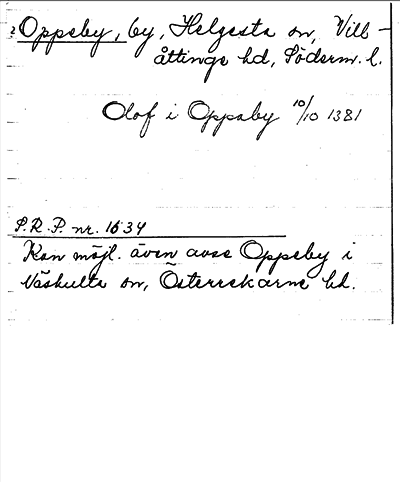 2 Oppeby, by, Helgesta sn, Vill-
åttinge hd, Söderm. l.
Olof i Oppaby 10/10 1381
S.R.P. nr. 1634
Kan möjl. även avse Oppeby i
Näshulta sn, Österrekarne hd.